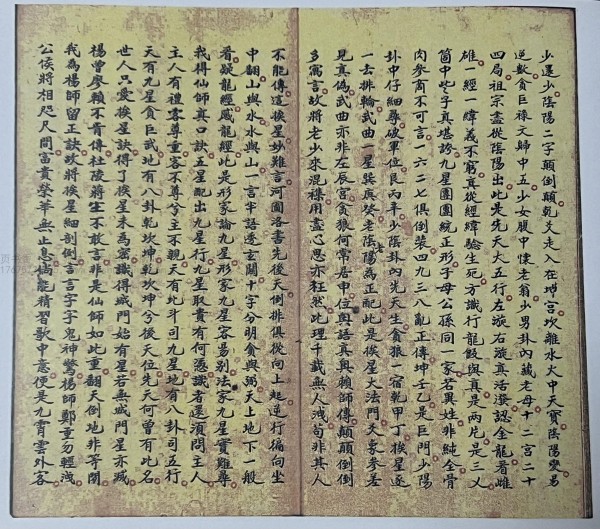 少還少陰陽二字顛倒顛乾爻走入在坤宮坎離水火中天寶陰陽變易
逆數貪巨祿文歸中五少女腹中懷老翁少男卦內藏老母十二宮二十
四局祖宗盡從陰陽出此是先天大五行左漩右漩真活潑認金龍看雌
雄一經一緯義不窮真從經緯驗生死方識行龍假與真是兩片是三乂
箇中些子真堪誇九星團團統正形子母公孫同一家若異姓非純全骨
肉參商不可言一六二七俱倒裝四九三八亂正傳坤壬乙是巨門少陽
卦中仔細尋破軍位艮丙辛少陰卦內先天生貪狼一宿乾甲丁挨星逐
一去排輪武曲一星巽真癸老陰陽為正配此是挨星大法門爻象參差
見真偽武曲亦非左辰宮貪狼何常居申位與語真與賴師傳顛顛倒倒
多寓言故將老少來混襍用盡心思亦枉然此理千載無人洩苟非其人
不能傳這挨星妙難言河圖洛書先後天倒排俱從向上起逆行徧向坐
中翻山與水水與山一言半語透玄關十字分明貪與弼天上地下一般
看疑龍經撼龍經此是形家論九星形家九星容易剔法家九星實難尋
我得仙師真口訣五星配出九星行九星取貴有何憑識者還須問主人
主人有禮客尊重客不尊兮主不親天有北斗司九星地有八卦司五行
天有九星貪巨武地有八卦乾坎坤乾坎坤兮後天位先天何曾有此名
世人只愛挨星訣得了挨星未為識得城門始有星若無城門星亦滅
楊曾廖賴不肯傳杜陵蔣生不敢言非是仙師如此重翻天倒地非等閒
我為楊師留正訣故將挨星細剖倒言言字字鬼神驚楊師鄭重勿輕洩
公侯將相咫尺間富貴榮華無止息倘能精習歌中意便是九霄雲外客